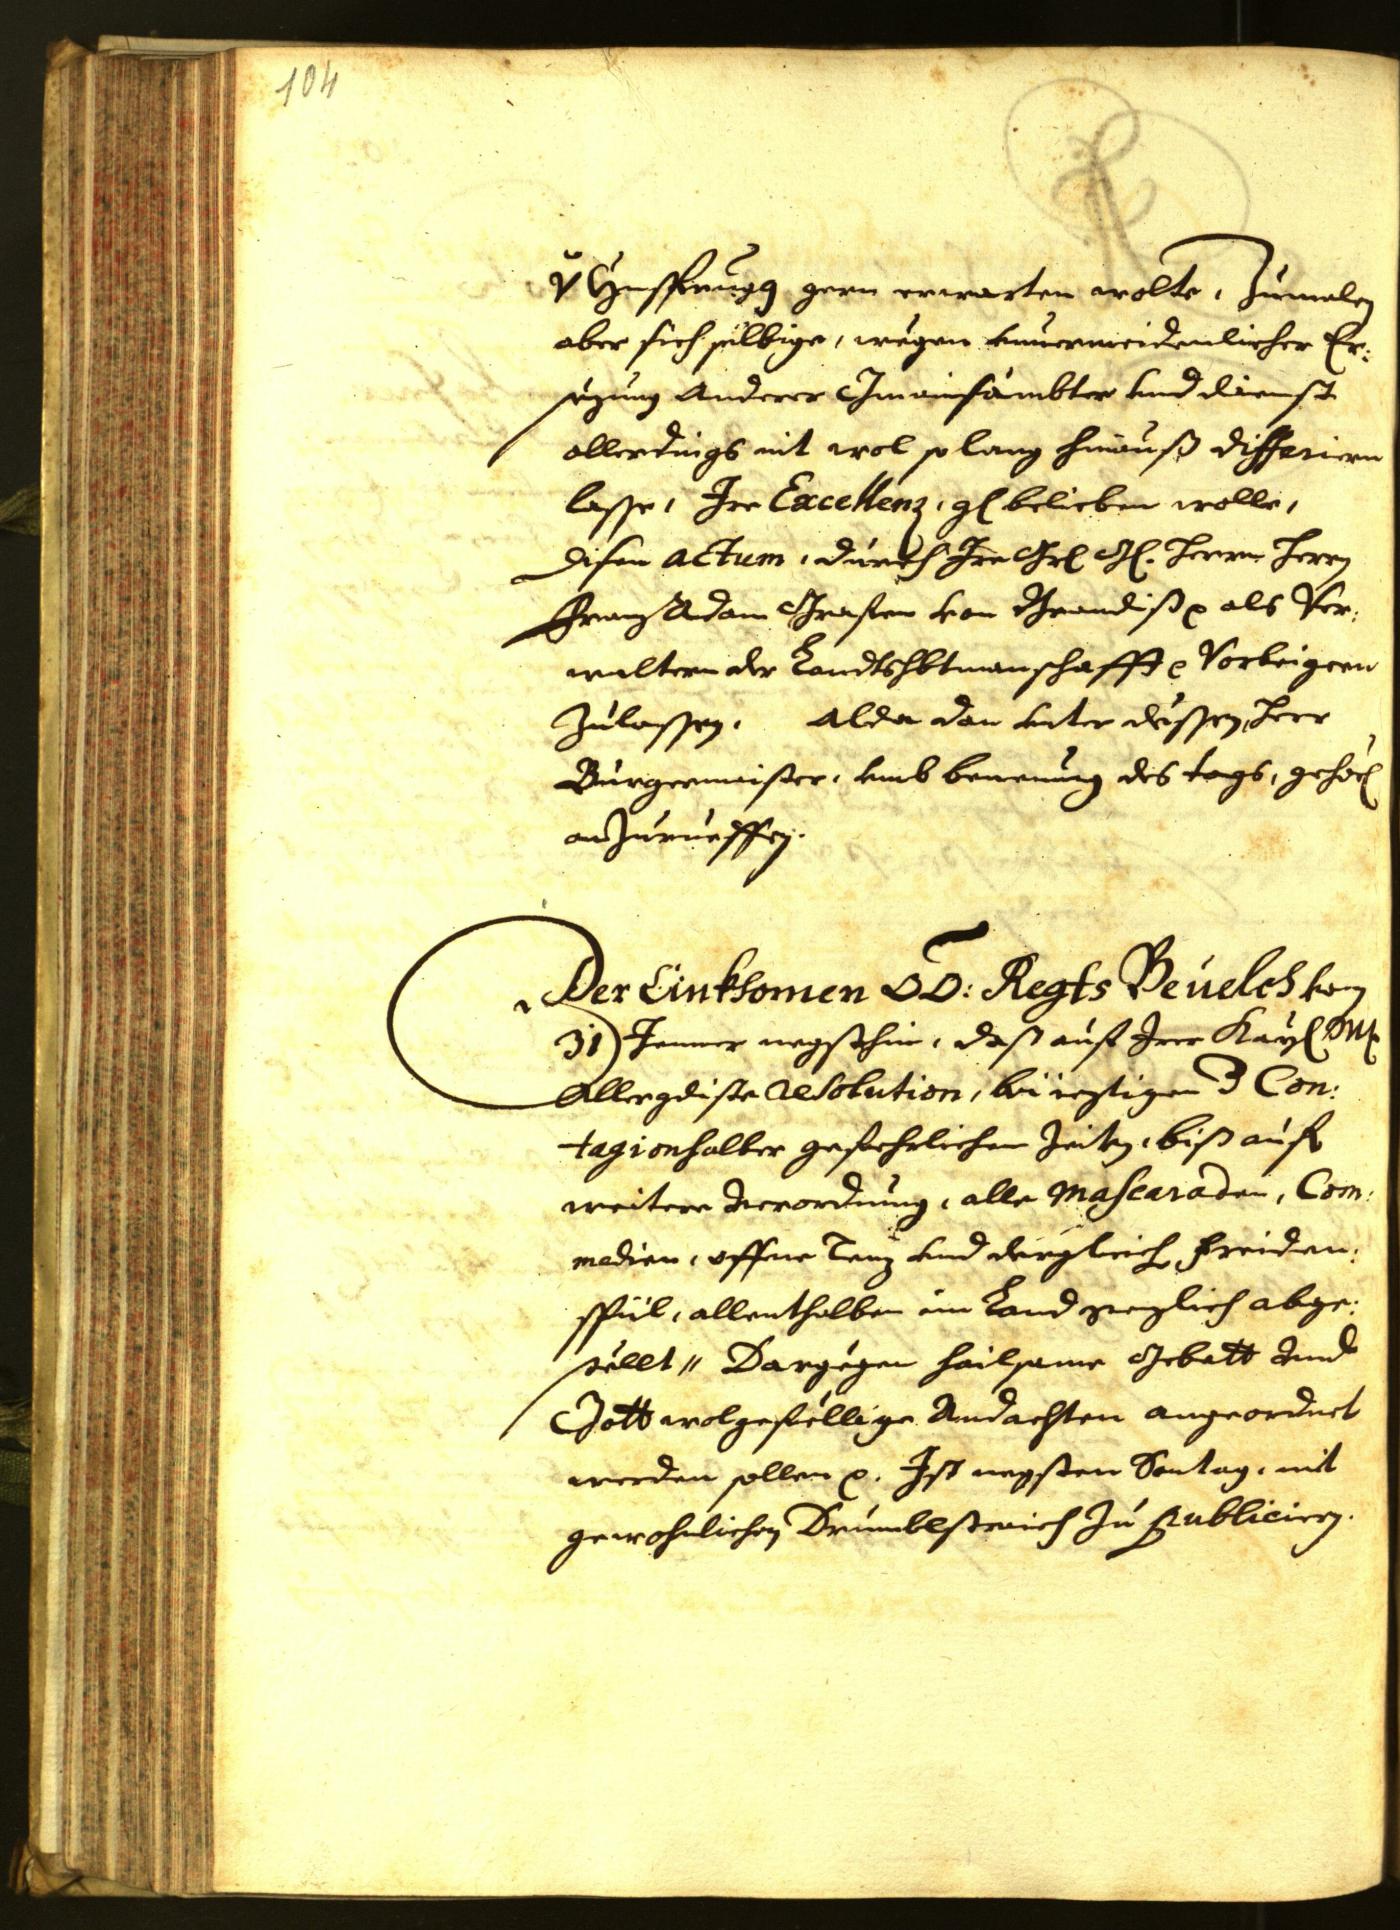 104
v Ynsprugg gern erwarten wolte, Zumalen
aber sich selbige, wegen unvermeidenlicher Er:
sezung Anderer Gmainsämbter und dienst
allerdings nit wol so lang hinauß differiern
lasse, Ire Excellenz, gl belieben wolle,
disen actum, durch Ire Grl Gl. Herrn Herrn
Franz Adam Grafen von Brandiß p als Ver:
waltern der Landtshbtmanschafft p Vorbeigeen
Zulassen. Alda dan unter dessen, Herr
Burgermaister, umb benenung des tags, gehorl
anZurueffen.
Der Einkhomen OÖ: Regts Beuelch vom
31 Jenner negsthin, daß auf Irer Kayl Mt
Allergdiste Resolution, bei ieztigen Con:
tagion halber gefehrlichen Zeiten, biß auf
weitere Verordnung, alle Mascaraden, Com:
medien, offene Tenz und dergleich Freiden:
spiil, allenthalben im Land genzlich abge:
stellt // Dargegen hailsame Gebett und
Gott wolgefellige Andachten angeordnet
werden sollen p. Ist negsten Sontag, mit
gewohnlichen Drumblstraich Zu publiciern.